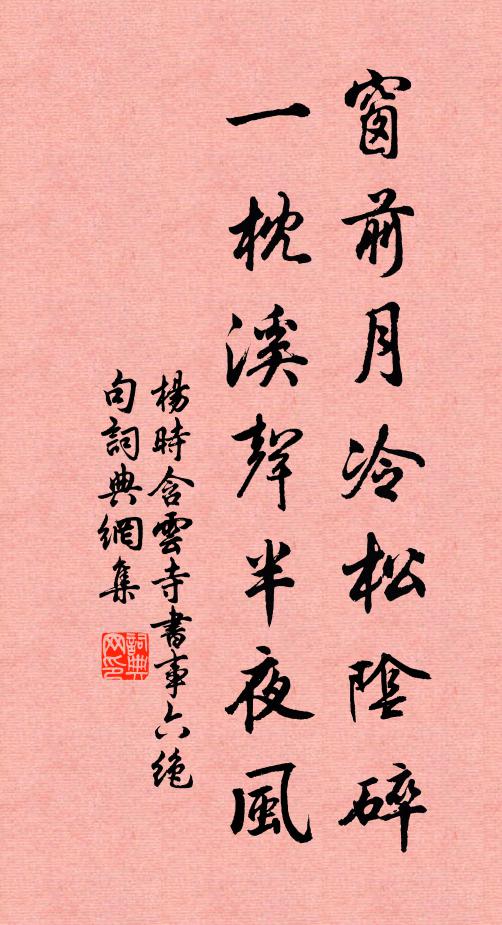 窗前月冷松陰碎
一枕溪聲半夜風
楊時含雲寺書事六絶
句詞典網集
詞典
网印